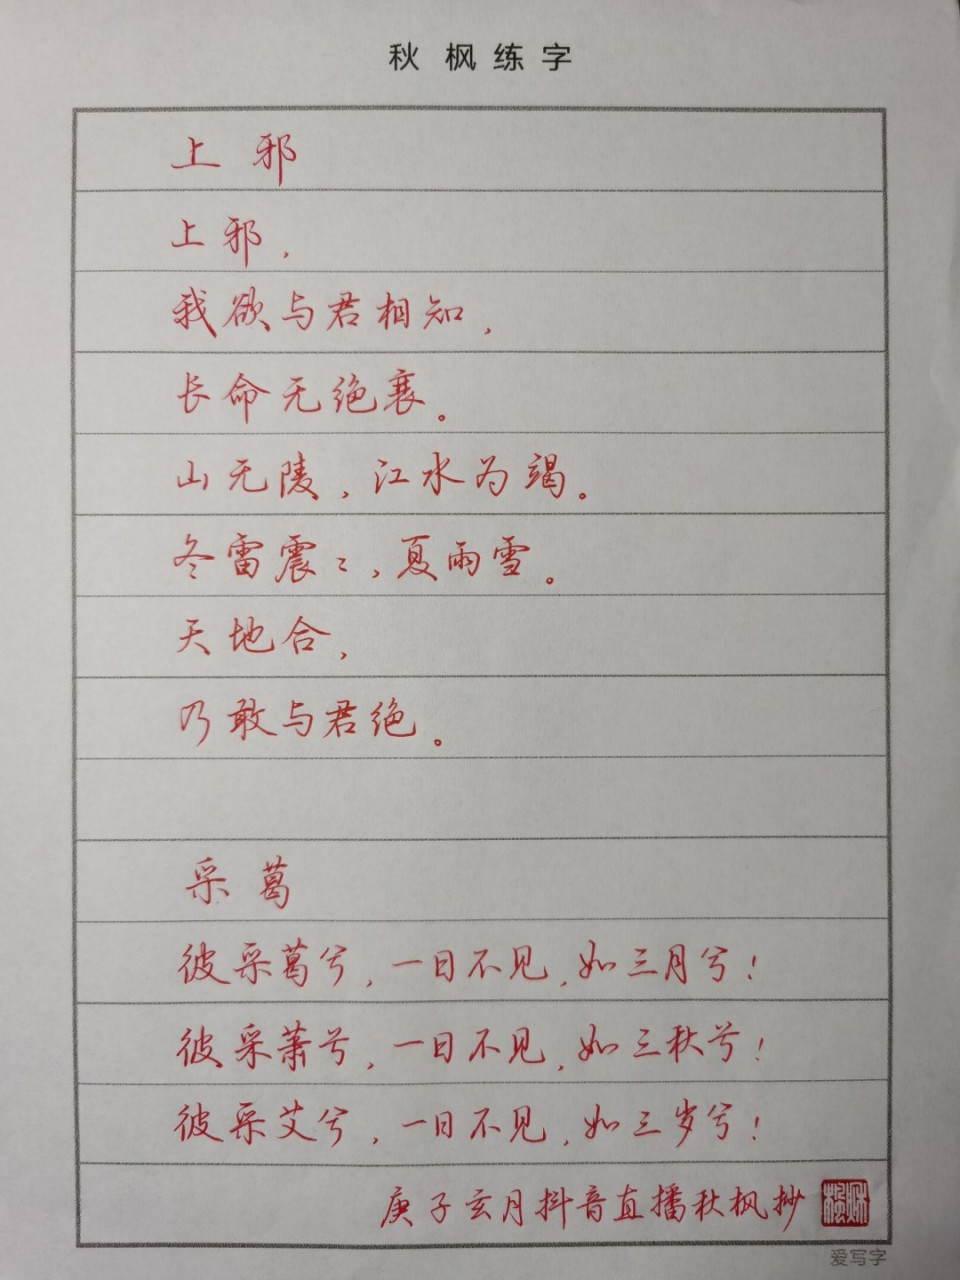 秋枫练字
上邪
上邪，
我欲与君相知，
长命无绝衰。
山无陵，江水为竭。
冬雷震〻，夏雨雪。
天地合，
乃敢与君绝。
采葛
彼采葛兮，一日不见，如三月兮！
彼采萧兮，一日不见，如三秋兮！
彼采艾兮，一日不见，如三岁兮！
庚子亥月抖音直播秋枫抄
爱写字